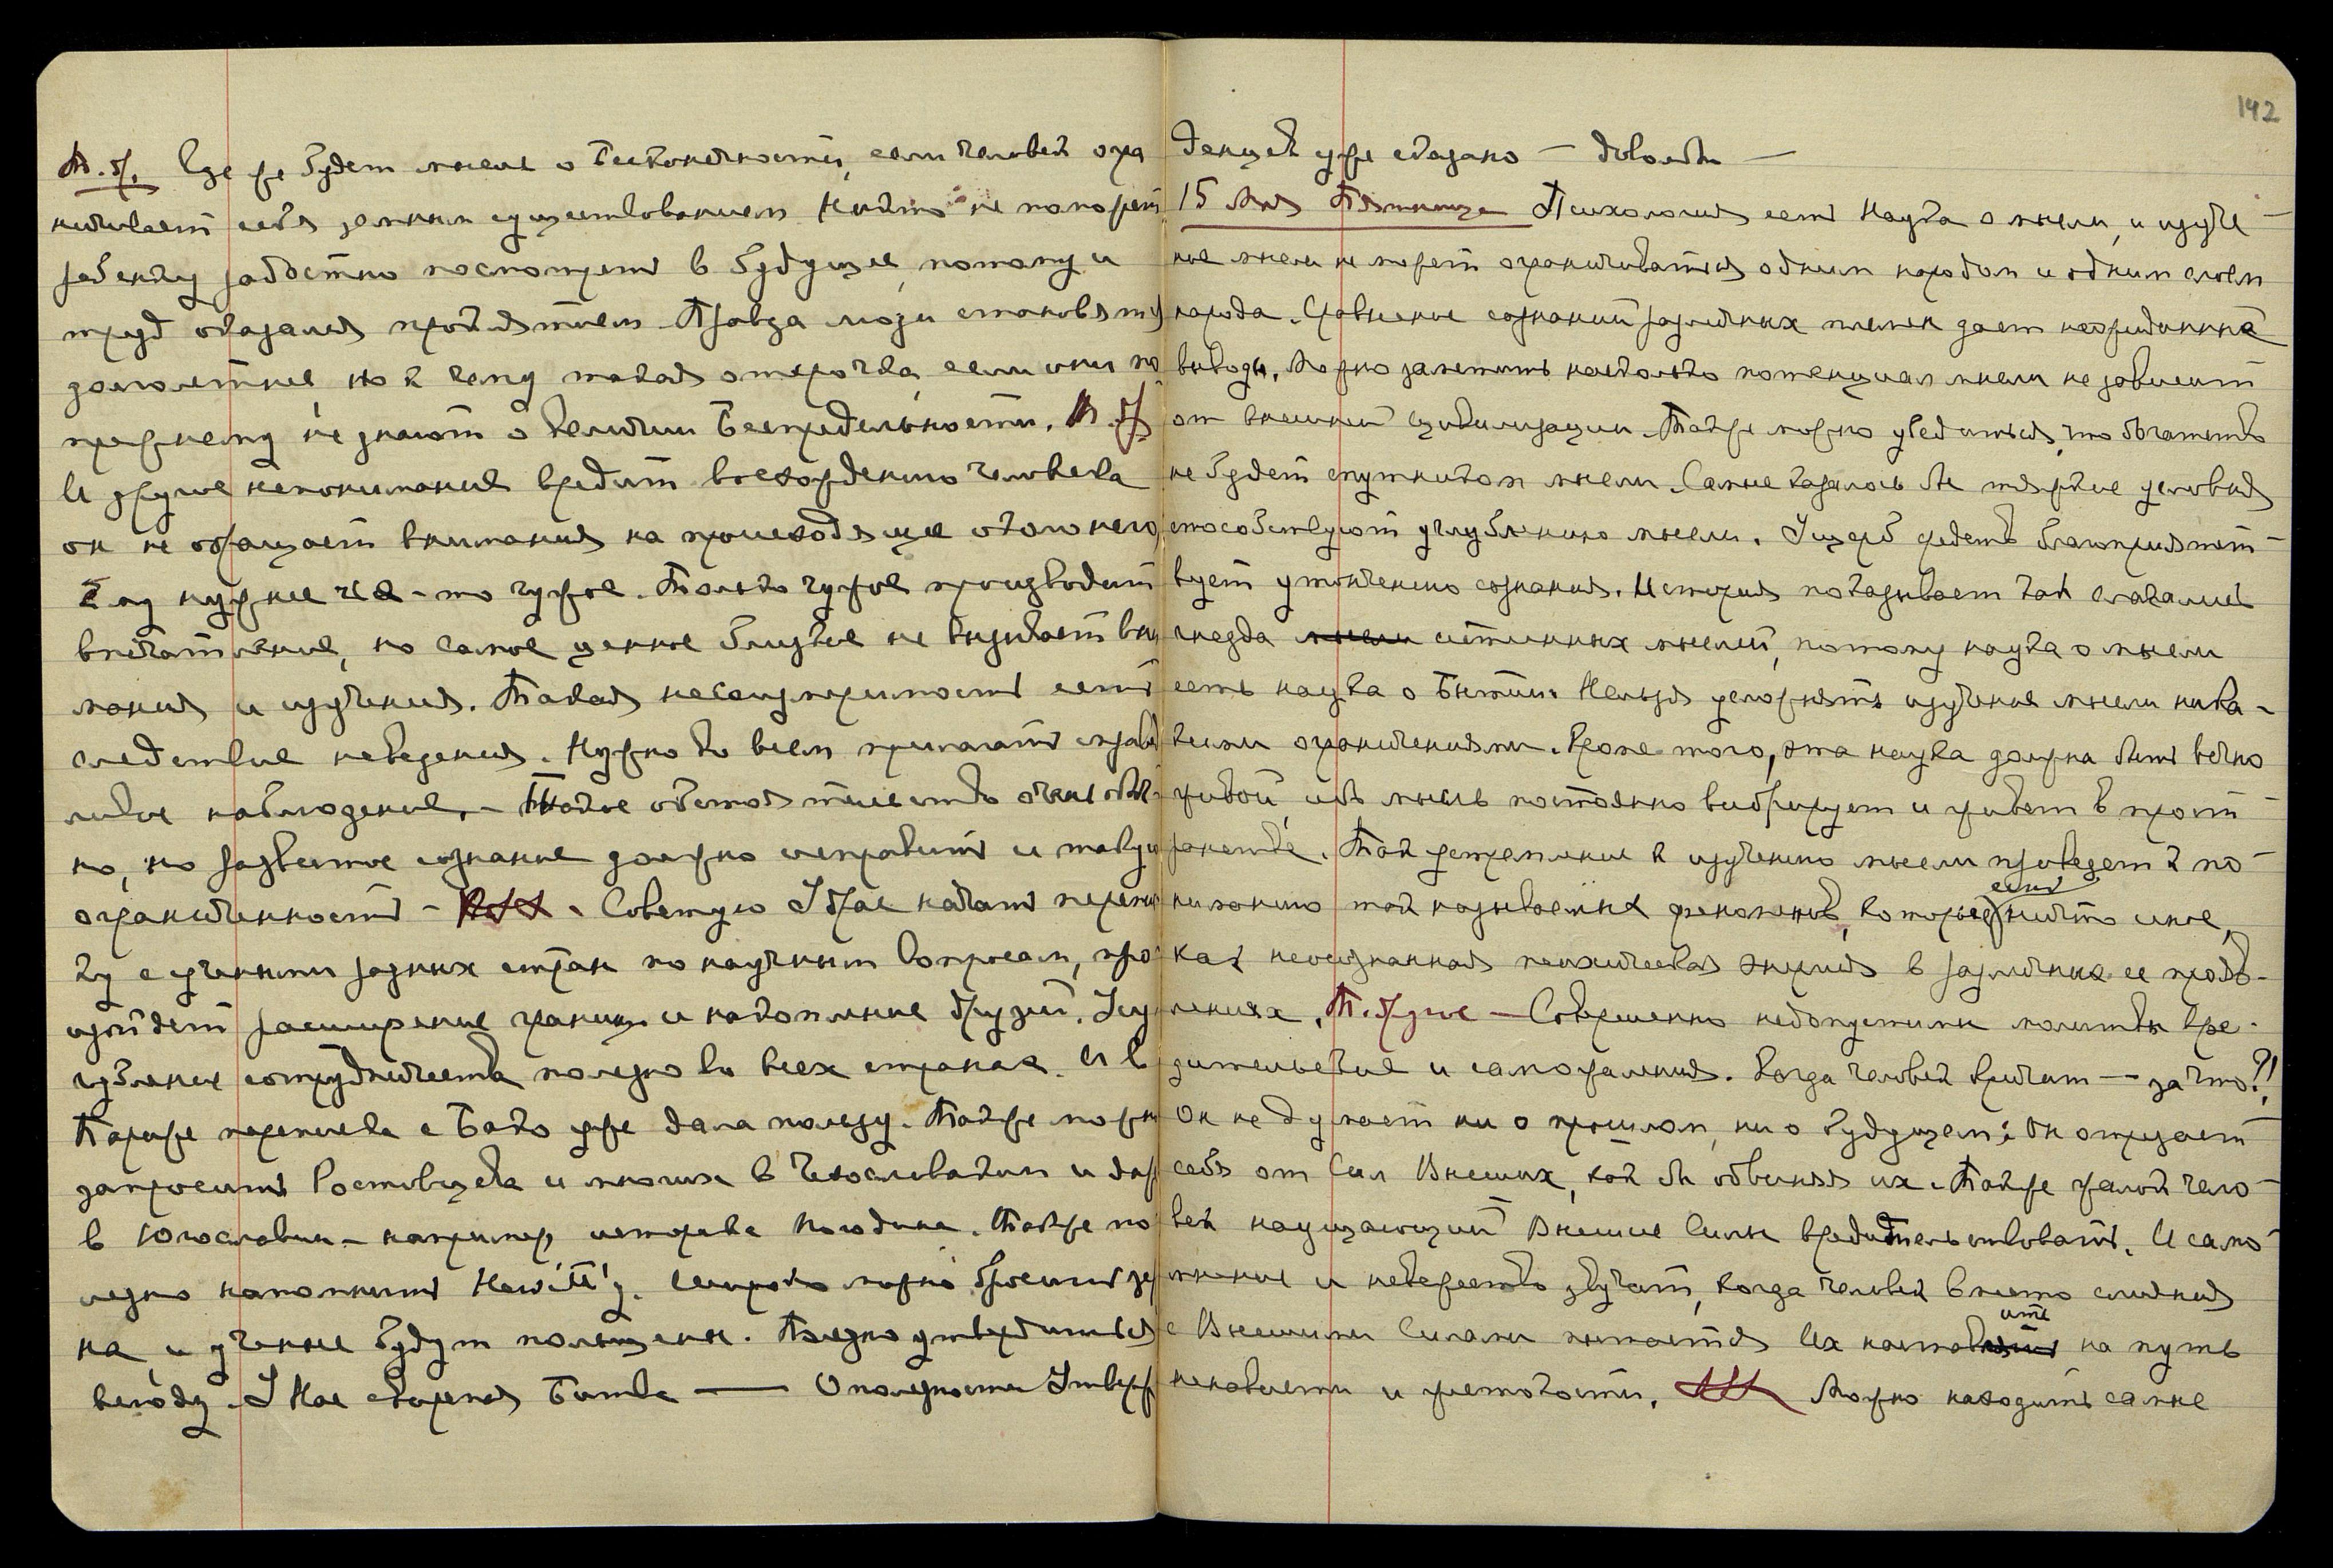 Где же будет мысль о Бесконечности, если человек огра
ничивает себя земным существованием Никто не поможет
ребенку радостно посмотреть в будущее, потому и
труд оказался проклятием. Правда люди становятся
долголетнее, но к чему такая отсрочка, если они по
прежнему не знают о величии Беспредельности.
И другое непонимание вредит восхождению человека
он не обращает внимания на происходящее около него,
Ему нужнее чье-то чужое. Только чужое производит
впечатление, но самое ценное близкое не вызывает вни
мания и изучения. Такая несоизмеримость есть
следствие неведения. Нужно ко всем прилагать справед
ливое наблюдение. - Такое обстоятельство очень обыч
но, но развитое сознание должно исправить и такую
ограниченность - Советую Удрае начать перепис
ку с учеными разных стран по научным вопросам, про
изойдет расширение границ и накопление друзей. Усу
губление сотрудничества полезно во всех странах. И в
Париже переписка с Бако уже дала пользу. Также можно
запросить Ростовцева и многих в Чехословакии и даже
в Югославии - например, историка Погодина. Также по
лезно напомнить Hewitt'у. Широко можно бросить зер
на, и ученые будут польщены. Полезно утвердиться
всюду. У Нас сварена Битва — О полезности Утверж
142
денцев уже сказано — довольно —
15 Мая Пятница Психология есть Наука о мысли, и изуче-
ние мысли не может ограничиваться одним народом и одним слоем
народа. Сравнение сознаний различных племен дает неожиданные
выводы. Можно заметить насколько потенциал мысли не зависит
от внешней цивилизации. Также можно убедиться, что богатство
не будет спутником мысли. Самые казалось бы тяжкие условия
способствуют углублению мысли. Ущерб средств благоприятст-
вует утончению сознания. История показывает как слагались
гнезда мысли истинных мыслей, потому наука о мысли
есть наука о Бытии. Нельзя усложнять изучение мысли ника-
кими ограничениями. Кроме того, эта наука должна быть вечно
живой, ибо мысль постоянно вибрирует и живет в прост-
ранстве. Так устремление к изучению мысли приведет к по-
ниманию так называемых феноменов, которые есть ничто иное,
как неосознанная психическая энергия в различных ее прояв-
лениях. - Совершенно недопустимы молитвы вре-
дительские и саможаления. Когда человек кричит — за что?!
Он не думает ни о прошлом, ни о будущем: Он отрезает
себя от Сил Высших, как бы обвиняя их. Также жалок чело-
век научающий Высшие Силы вредительствовать. И само-
мнение и неверство звучат, когда человек вместо слияния
с Высшими Силами пытается Их наставить на путь
ненависти и жестокости. Можно находить самые